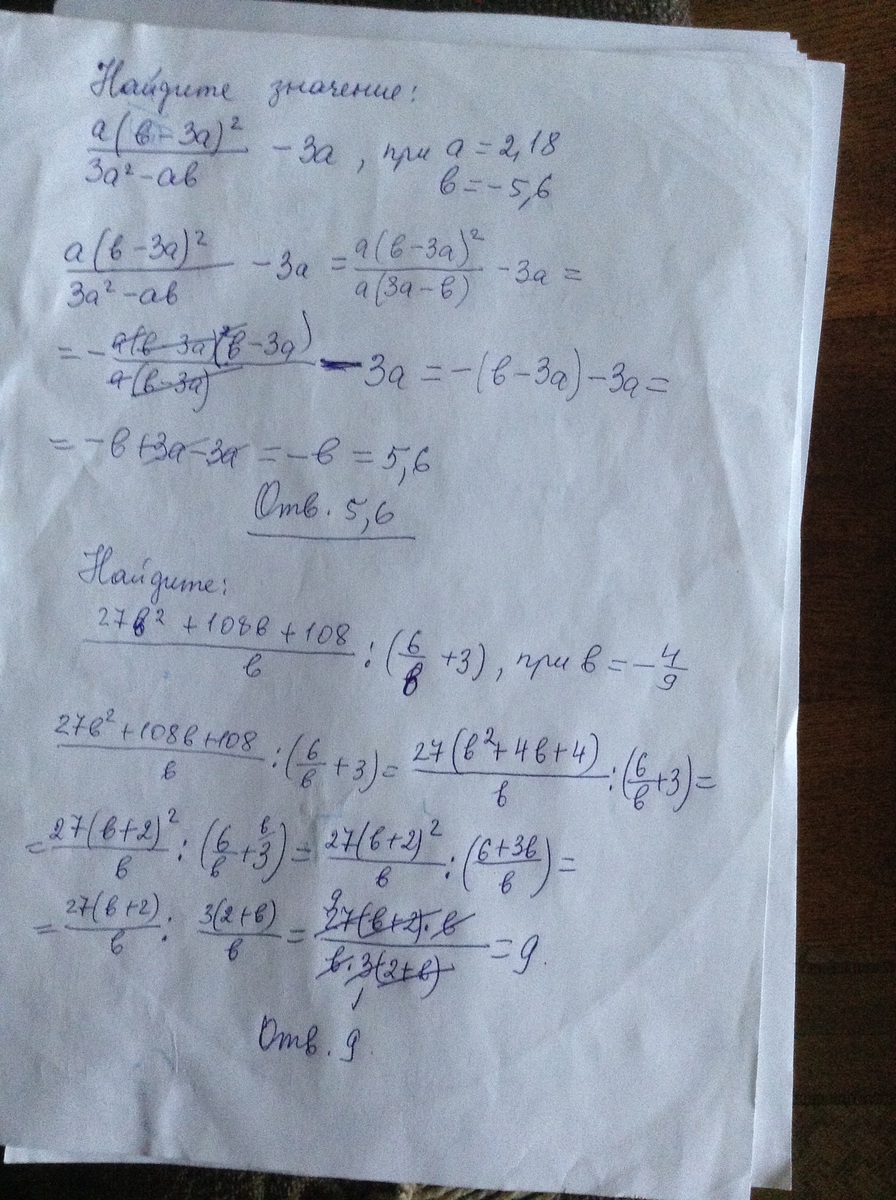 Найдите значение:
a(в-3a)²/3a²-aв - 3a, при a = 2,18
в = -5,6
a(в-3a)²/3a²-aв - 3a = a(в-3a)²/a(3a-в) - 3a =
= - a(в-3a)²(в-3a)/a(в-3a) - 3a = -(в-3a)-3a =
= -в+3a-3a = -в = 5,6
Отв. 5,6
Найдите:
27в²+108в+108/в : (6/в +3), при в = -4/9
27в²+108в+108/в : (6/в +3) = 27(в²+4в+4)/в : (6/в +3) =
= 27(в+2)²/в : (6/в + в/3) = 27(в+2)²/в : (6+3в/в) =
= 27(в+2)/в : 3(2+в)/в = 9 27(в+2)·в/в·3(2+в) 1 = 9.
Отв. 9.